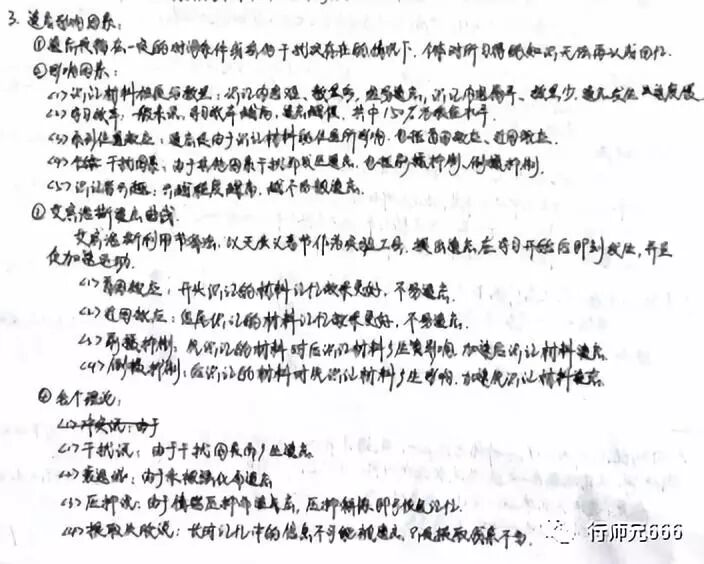 3. 遗忘影响因素:
①遗忘是指在一定的时间条件或其他干扰项存在的情况下，个体对所习得的知识无法再认或回忆.
②影响因素:
<1>识记材料程度与数量: 识记内容难、数量多，越易遗忘，识记内容简单、数量少，遗忘发生且速度慢
<2>学习效率: 一般来说，学习效率越高，遗忘越慢，其中150%为最佳水平.
<3>系列位置效应: 遗忘是由于识记材料的位置所影响. 包括首因效应、近因效应.
<4>干扰因素: 由于其他因素干扰而发生遗忘，包括前摄抑制、倒摄抑制.
<5>识记者兴趣: 兴趣程度越高，越不易被遗忘.
③艾宾浩斯遗忘曲线.
艾宾浩斯利用节省法，以无意义音节作为实验工具，提出遗忘在学习开始后即刻发生，并且
<1>首因效应: 开头识记的材料记忆效果更好，不易遗忘.
<2>近因效应: 结尾识记的材料记忆效果更好，不易遗忘.
<3>前摄抑制: 先识记的材料对后识记材料产生影响，加速后识记材料遗忘.
<4>倒摄抑制: 后识记的材料对先识记材料产生影响，加速先识记材料遗忘.
④各个理论:
<1>冲突说: 由于
<1>干扰说: 由于干扰因素而产生遗忘.
<2>衰退说: 由于未被强化而遗忘
<3>压抑说: 由于情绪压抑而遗忘，压抑解除即可恢复记忆.
<4>提取失败说: 长时记忆中的信息不可能被遗忘，只是提取线索不当.
行师兄666